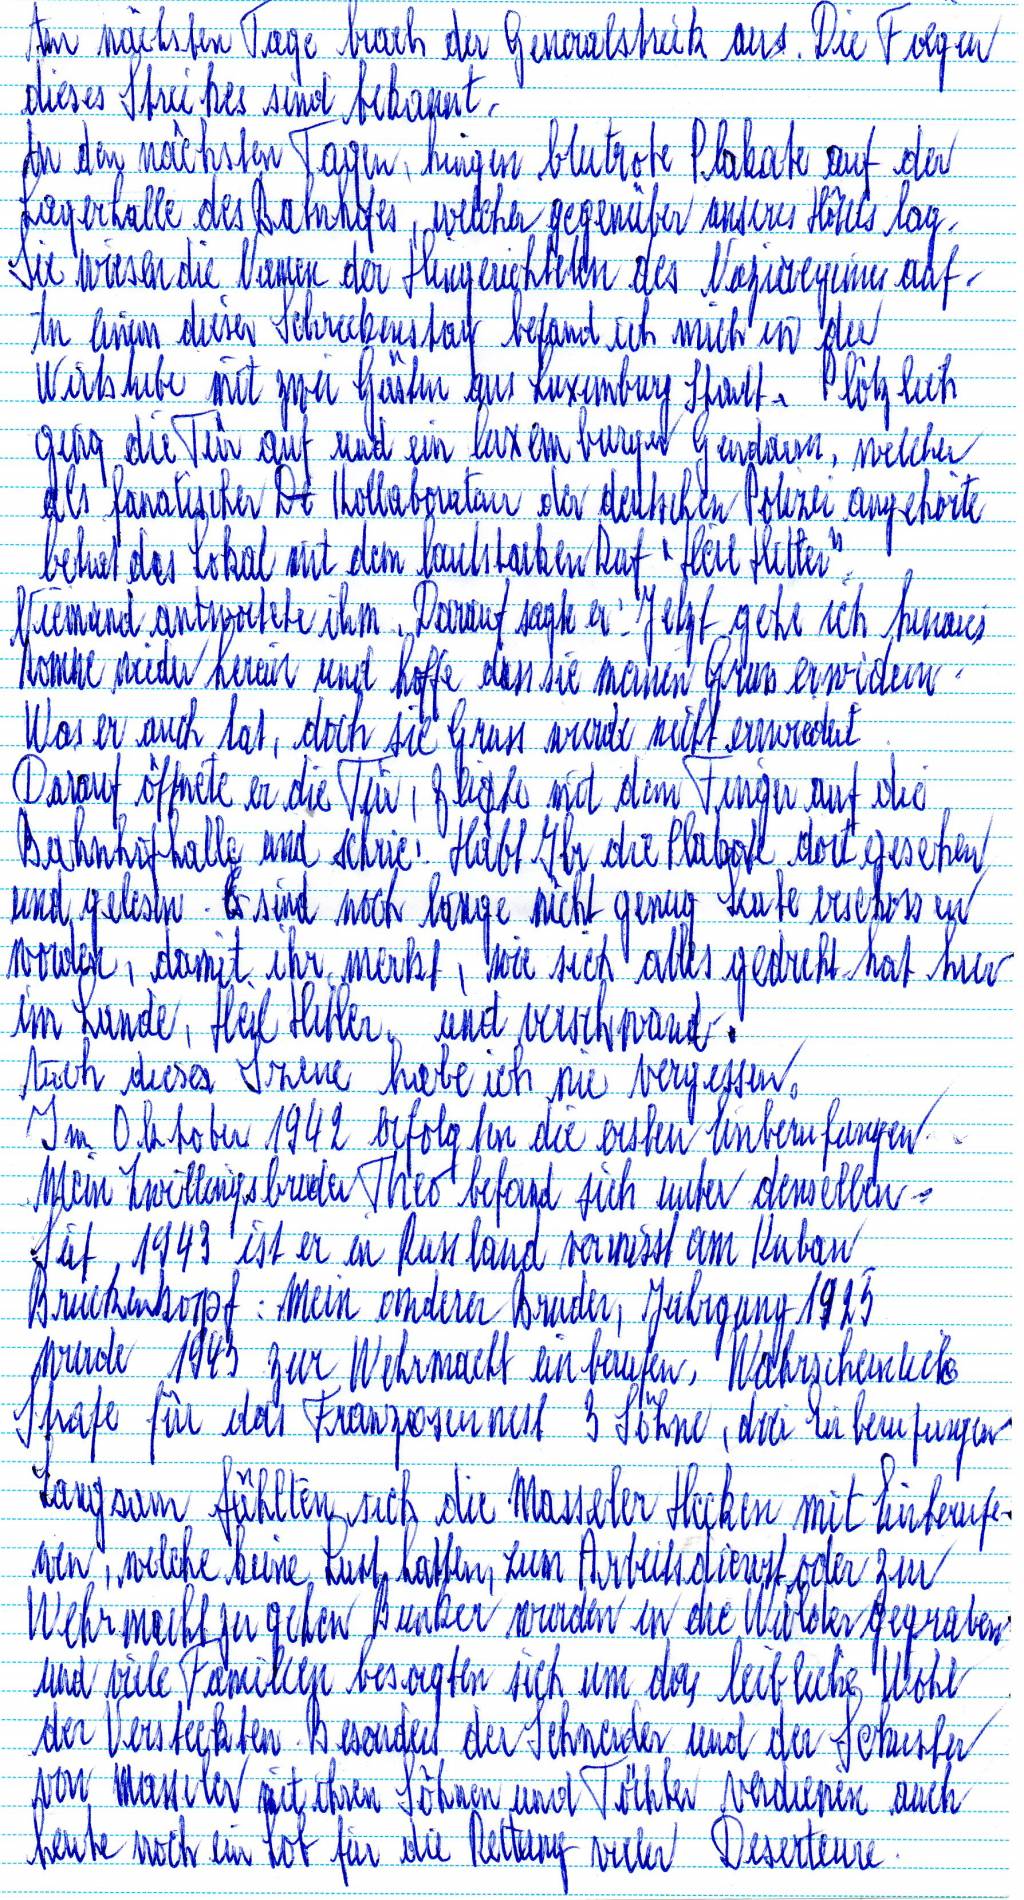 Am nächsten Tage brach der Generalstreik aus. Die Folgen
dieses Streikes sind bekannt.
In den nächsten Tagen, hingen blutrote Plakate auf der
Lagerhalle des Bahnhofes, welcher gegenüber unseres Hotels lag.
Sie wiesen die Namen der Hingerichteten des Naziregimes auf.
In einem dieser Schreckenstag befand ich mich in der
Wirtstube mit zwei Gästen aus Luxemburg Stadt. Plötzlich
ging die Tür auf und ein luxemburger Gendarm, welcher
als fanatischer De Kollaborateur der deutschen Polizei angehörte
betrat das Lokal mit dem lautstarken Ruf "Heil Hitler".
Niemand antwortete ihm. Darauf sagte er: Jetzt gehe ich hinaus
komme wieder herein und hoffe dass sie meinen Gruss erwidern.
Was er auch tat, doch sie Gruss wurde nicht erwiedert
Darauf öffnete er die Tür, zeigte mit dem Finger auf die
Bahnhofhalle und schrie: Habt Ihr die Plakate dort gesehen
und gelesen. Es sind noch lange nicht genug Leute erschossen
worden, damit ihr merkt, wie sich alles gedreht hat hier
im Lande, Heil Hitler. und verschwand.
Auch dieses Szene habe ich nie vergessen.
Im Oktober 1942 erfolgten die ersten Einberufungen.
Mein Zwillingsbruder Theo befand sich unter denselben.
Seit 1943 ist er in Russland vermisst am Kuban
Bruckenkopf: Mein anderer Bruder, Jahrgang 1925
wurde 1943 zur Wehrmacht einberufen, Wahrscheinlich
Strafe für das Franzosennest 3 Söhne, drei Einberufungen
Langsam fühlten sich die Masseler Hecken mit Einberufe-
nen, welche keine Lust hatten, zum Arbeitsdienst oder zur
Wehrmacht zu gehen Bunker wurden in die Wälder gegraben
und viele Familien besorgten sich um das leibliche Wohl
der Versteckten. Besonders der Schneider und der Schuster
von Masseler mit ihren Söhnen und Töchter verdienen auch
heute noch ein Lob für die Rettung vieler Deserteure.